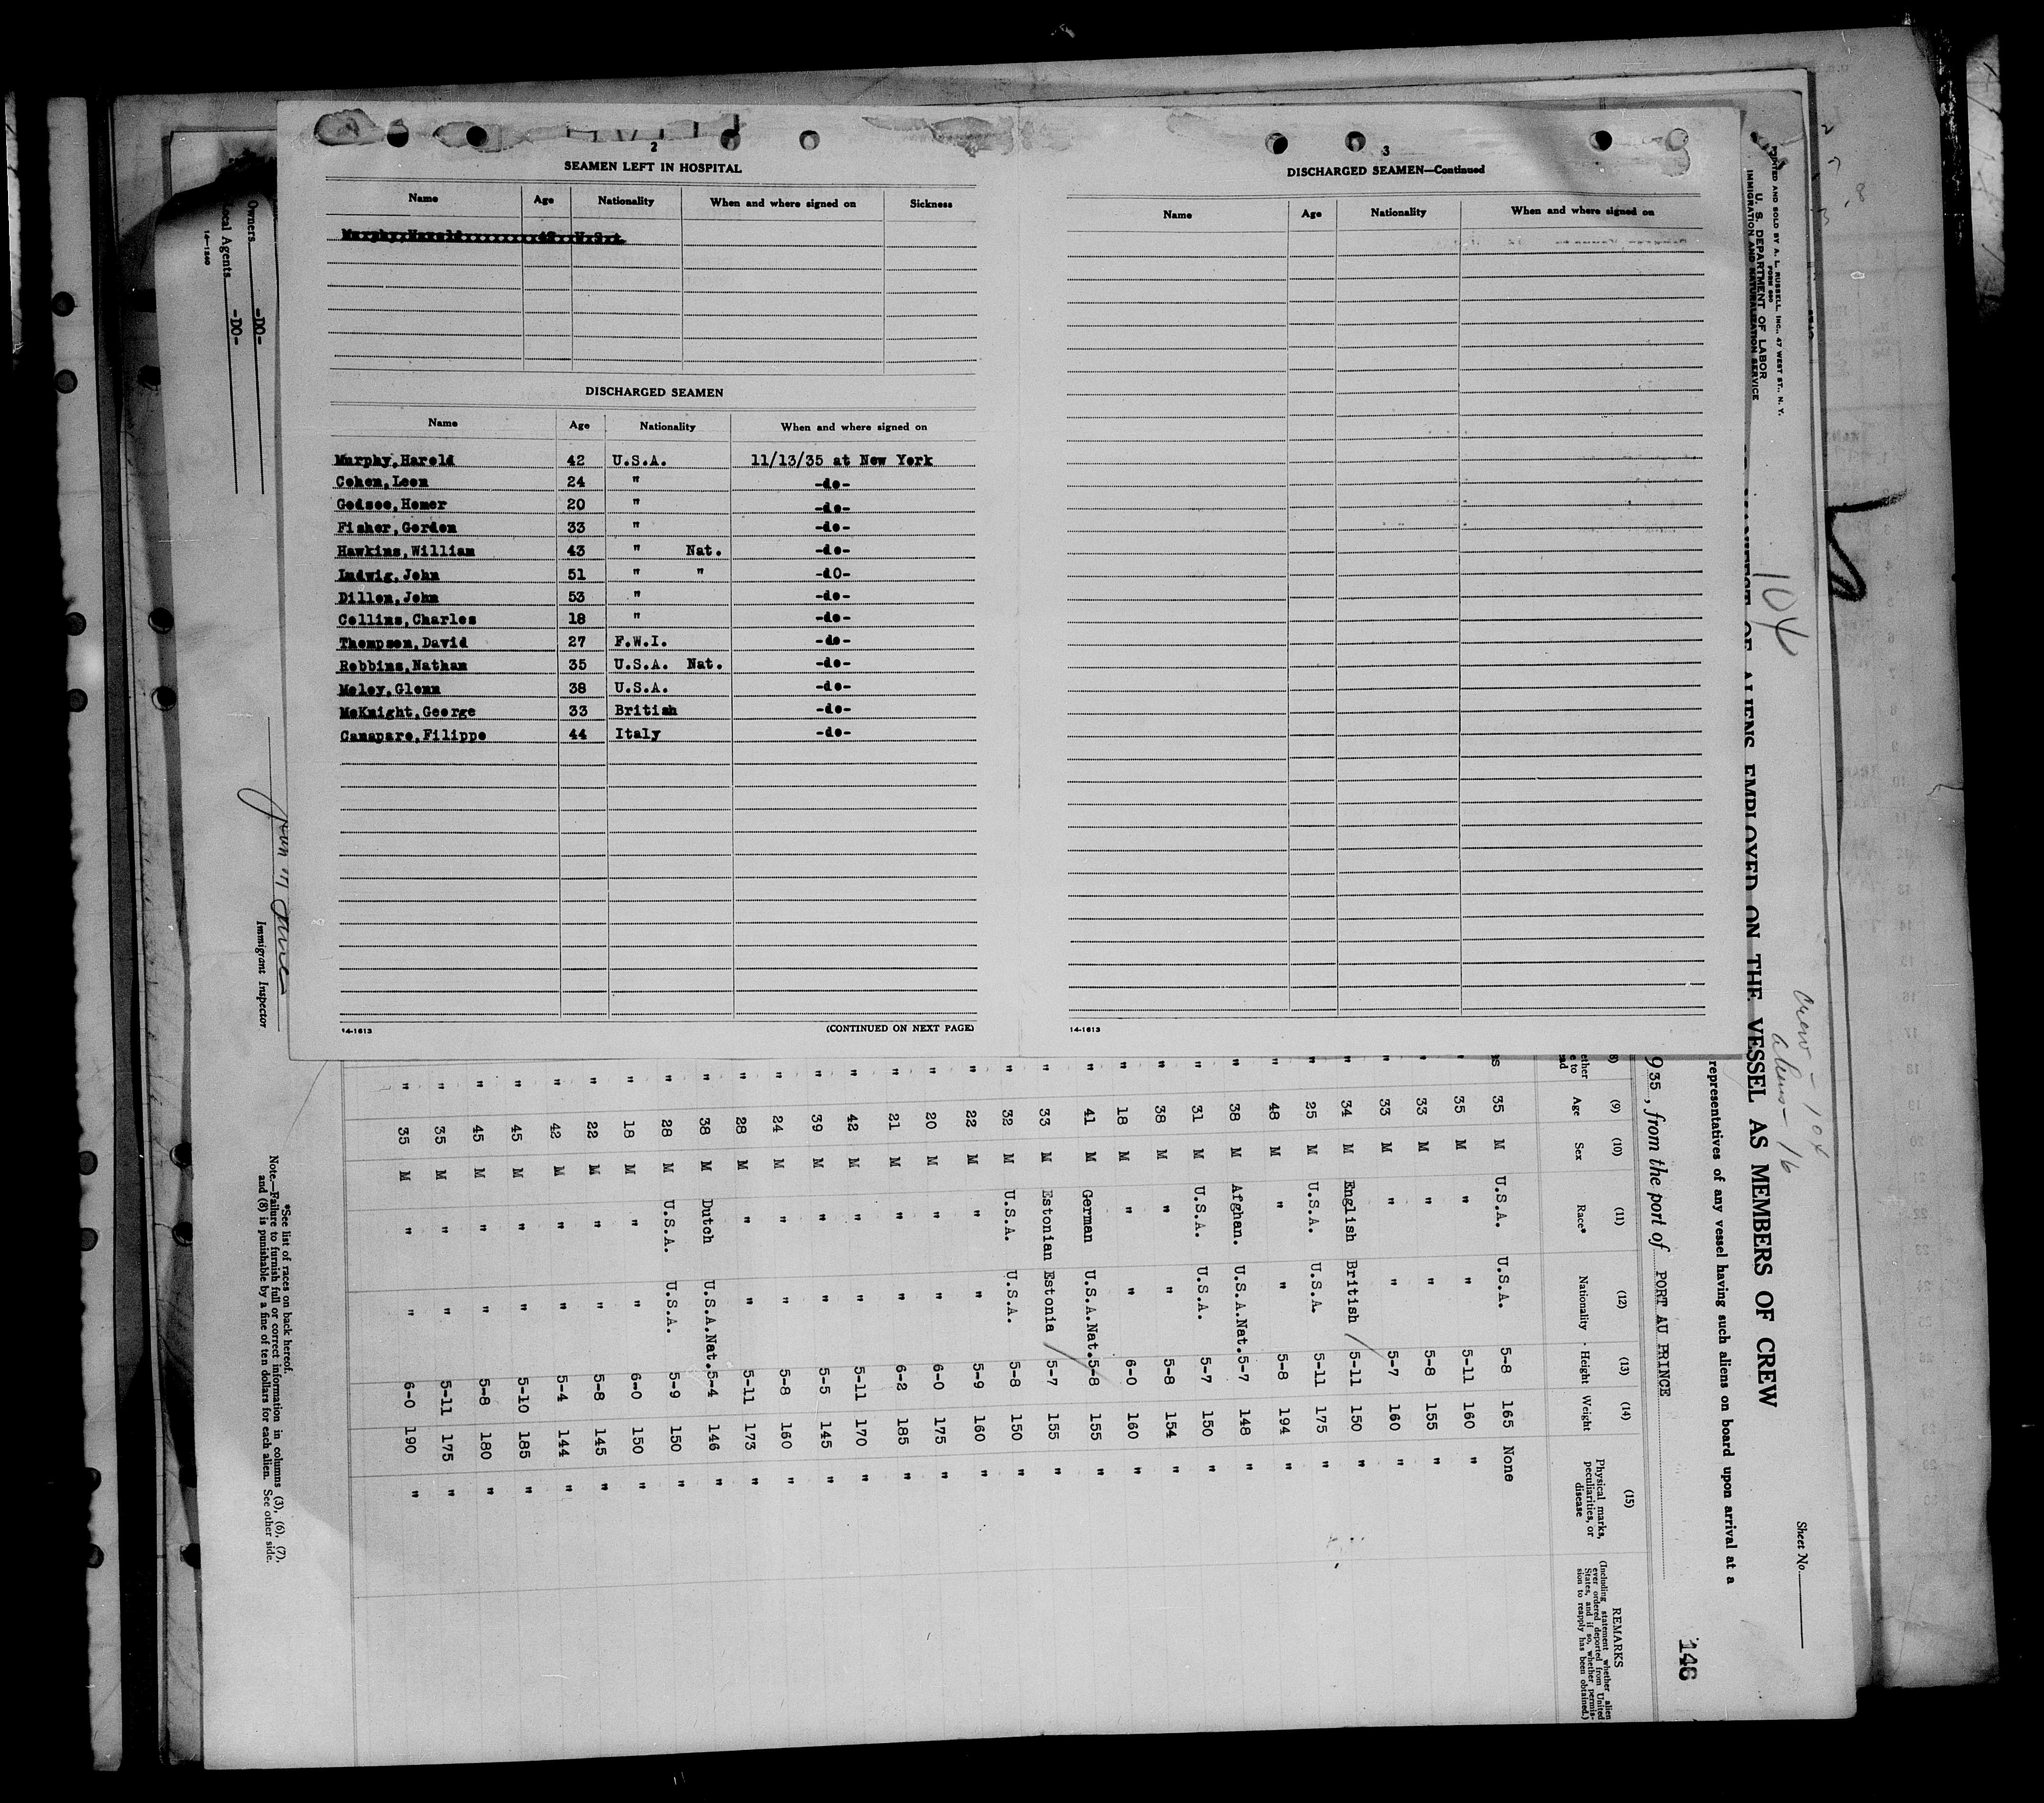 2
SEAMEN LEFT IN HOSPITAL
Name Age Nationality When and where signed on Sickness
Murphy,Harold 42 U.S.A.
DISCHARGED SEAMEN
Name Age Nationality When and where signed on
Murphy,Harold 42 U.S.A. 11/13/35 at New York
Cohen,Leon 24 " -do-
Godsoe,Homer 20 " -do-
Fisher,Gordon 33 " -do-
Hawkins,William 43 " Nat. -do-
Ludwig,John 51 " " -dO-
Dillon,John 53 " -do-
Collins,Charles 18 " -do-
Thompson,David 27 F.W.I. -do-
Robbins,Nathan 35 U.S.A. Nat. -do-
Moley,Glenn 38 U.S.A. -do-
McKnight,George 33 British -do-
Canapare,Filippo 44 Italy -do-
14-1613 (CONTINUED ON NEXT PAGE)
3
DISCHARGED SEAMEN—Continued
Name Age Nationality When and where signed on
14-1613
PRINTED AND SOLD BY A. L. RUSSELL, INC., 47 WEST ST., N. Y.
FORM 680
U. S. DEPARTMENT OF LABOR
IMMIGRATION AND NATURALIZATION SERVICE
104
Crew - 104
aliens - 16
Sheet No.
OF ALIENS EMPLOYED ON THE VESSEL AS MEMBERS OF CREW
representatives of any vessel having such aliens on board upon arrival at a
935, from the port of PORT AU PRINCE
148
(9) (10) (11) (12) (13) (14) (15)
Age Sex Race* Nationality Height Weight Physical marks, peculiarities, or disease
REMARKS
(Including statement whether alien ever ordered deported from United States, and if so, whether permission to reapply has been obtained.)
35 M U.S.A. U.S.A. 5-8 165 None
" 35 M " " 5-11 160 "
" 33 M " " 5-8 155 "
" 33 M " " 5-7 160 "
" 34 M English British 5-11 150 "
" 25 M U.S.A. U.S.A. 5-11 175 "
" 48 M " " 5-8 194 "
" 38 M Afghan. U.S.A.Nat. 5-7 148 "
" 31 M U.S.A. U.S.A. 5-7 150 "
" 38 M " " 5-8 154 "
" 18 M " " 6-0 160 "
" 41 M German U.S.A.Nat. 5-8 155 "
" 33 M Estonian Estonia 5-7 155 "
" 32 M U.S.A. U.S.A. 5-8 150 "
" 22 M " " 5-9 160 "
" 20 M " " 6-0 175 "
" 21 M " " 6-2 185 "
" 42 M " " 5-11 170 "
" 39 M " " 5-5 145 "
" 24 M " " 5-8 160 "
" 28 M " " 5-11 173 "
" 38 M Dutch U.S.A.Nat. 5-4 146 "
" 28 M U.S.A. U.S.A. 5-9 150 "
" 18 M " " 6-0 150 "
" 22 M " " 5-8 145 "
" 42 M " " 5-4 144 "
" 45 M " " 5-10 185 "
" 45 M " " 5-8 180 "
" 35 M " " 5-11 175 "
" 35 M " " 6-0 190 "
*See list of races on back hereof.
Note.—Failure to furnish full or correct information in columns (3), (6), (7),
and (8) is punishable by a fine of ten dollars for each alien. See other side.
Immigrant Inspector
Owners -DO-
Local Agents -DO-
14-1240